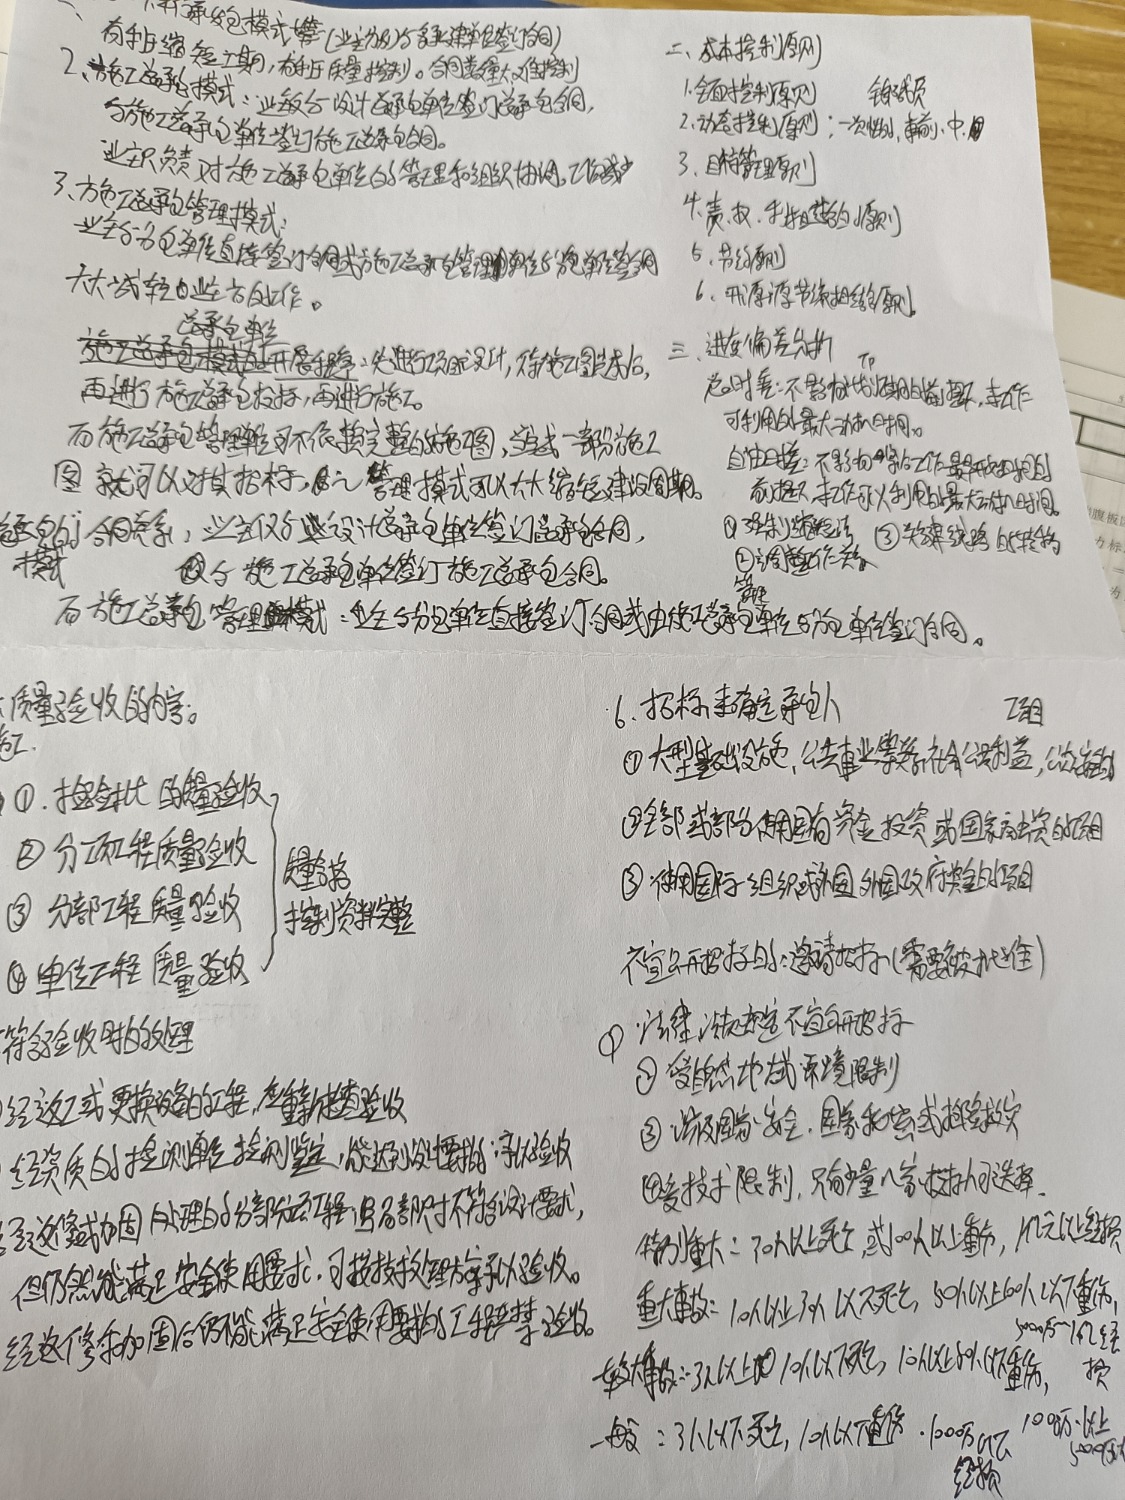 承发包模式
有利于缩短工期，有利于质量控制。合同数量大难控制
2、施工总承包模式：业主与设计总承包单位签订总承包合同，
与施工总承包单位签订施工总承包合同。
业主只负责对施工总承包单位的管理和组织协调。工作减少
3、施工总承包管理模式：
业主与分包单位直接签订合同或施工总承包管理单位与分包单位签合同
大大减轻了业主方的工作。
总承包单位
施工总承包模式的开展程序：先进行项目设计，待施工图结束后，
再进行施工总承包投标，再进行施工。
而施工总承包管理单位可不依赖完整的施工图，当完成一部分施工
图就可以对其招标，管理模式可以大大缩短建设周期。
总承包的合同关系，业主仅与设计总承包单位签订总承包合同，
模式 仅与施工总承包单位签订施工总承包合同。
而施工总承包管理模式：业主与分包单位直接签订合同或由施工总承包管理单位与分包单位签订合同。
二、成本控制原则
1.全面控制原则 全员
2.动态控制原则：一次性，事前、中、后
3、目标管理原则
4.责、权、利相结合的原则
5、节约原则
6、开源与节流相结合原则。
三、进度偏差分析
总时差：不影响总工期的前提下，本工作
可利用的最大机动时间。
自由时差：不影响紧后工作最早开始时间的
前提下，本工作可以利用的最大机动时间。
①强制缩短法 ③关键线路的转移
②调整工作关系
质量验收的内容。
施工.
①.检验批的质量验收
②分项工程质量验收
③分部工程质量验收
④单位工程质量验收
质量合格
控制资料完整
符合验收时的处理
经返工或更换设备的工程，应重新检查验收
经资质的检测单位检测鉴定，能达到设计要求的：予以验收
经返修或加固处理的分部分项工程，但局部尺寸不符合设计要求，
但仍然能满足安全使用要求，可按技术处理方案予以验收。
经返修和加固后仍不能满足安全使用要求的工程严禁验收。
6、招标来确定承包人 工程项目
①大型基础设施，公共事业等关系社会公共利益，公众安全的
②全部或部分使用国有资金投资或国家融资的项目
③使用国际组织或外国政府资金的项目
不宜公开招标的：邀请招标（需要被批准）
①法律法规规定不宜公开招标
②受自然地域环境限制
③涉及国家安全、国家秘密或抢险救灾
④受技术限制，只有少量几家投标人可选择.
特别重大：30人以上死亡，或100人以上重伤，1亿元以上经损
重大事故：10人以上30人以下死亡，50人以上100人以下重伤，
5000万~1亿经
损
较大事故：3人以上10人以下死亡，10人以上50人以下重伤，
1000万以上
5000万
一般：3人以下死亡，10人以下重伤．1000万以下
经损